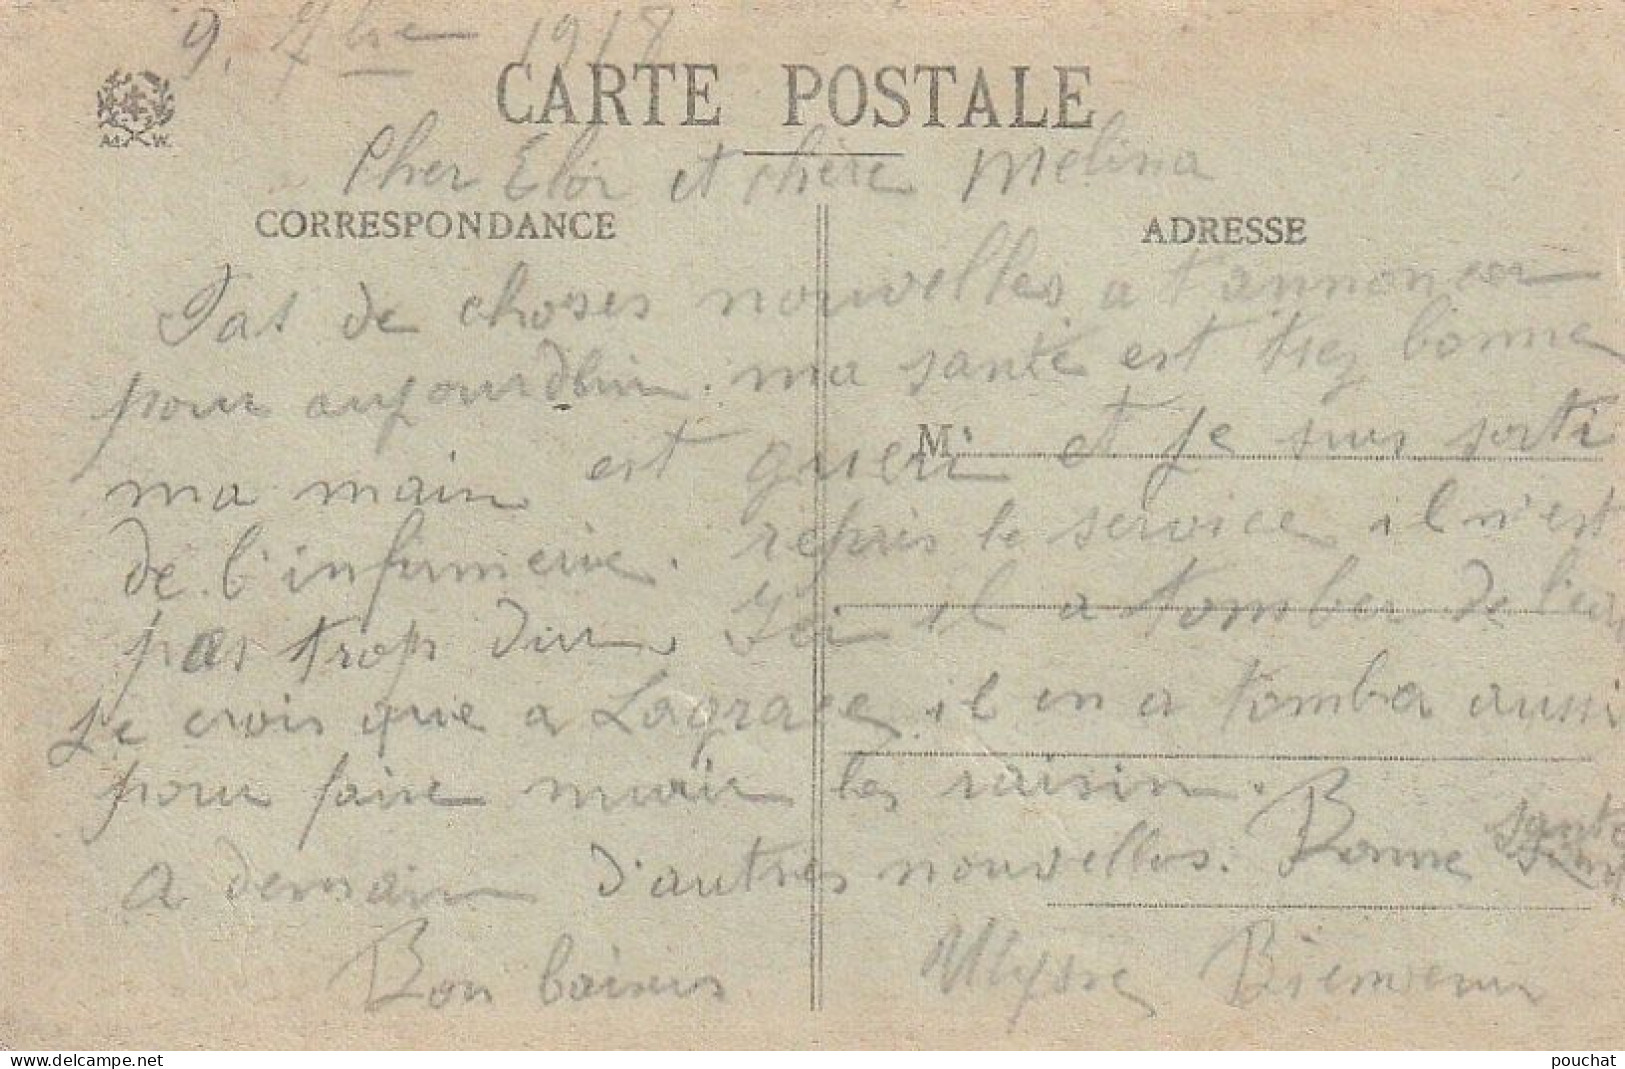 9. 7bre 1918
CARTE POSTALE
Ad. W.
Cher Eloi et chère Melina
CORRESPONDANCE
ADRESSE
Pas de choses nouvelles a t'annoncer
pour aujourdhui. ma santé est trez bonne
ma main est gueri et je suis sorti
M
de l'infirmerie. repris le service il n'est
pas trop dur. Ici il a tomber de l'eau
Je crois que a Lagrave il en a tomba aussi
pour faire murir les raisin.
A demain d'autres nouvelles. Bonne santé
Bon baisers Ulysse Bienvenu
delcampe.net
pouchat